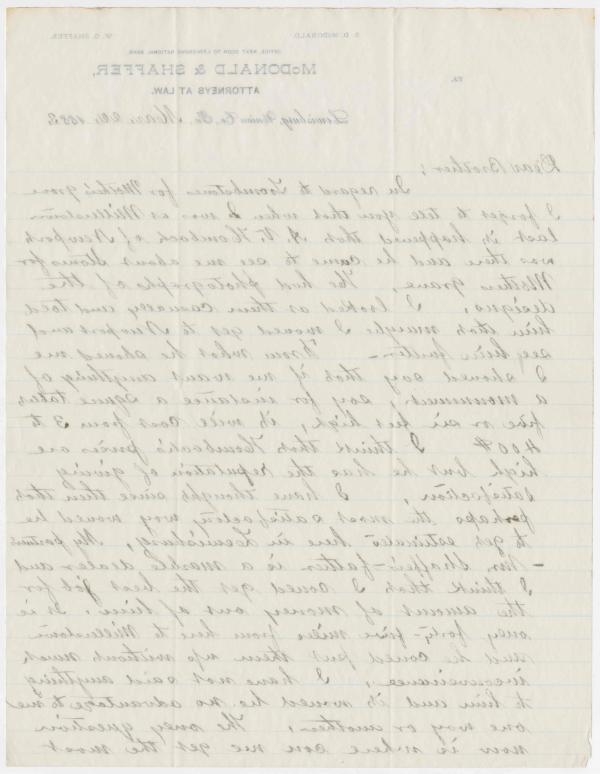 S. D. McDONALD. W. O. SHAFFER.
OFFICE, NEXT DOOR TO LEWISBURG NATIONAL BANK.
McDONALD & SHAFFER,
ATTORNEYS AT LAW.
Lewisburg, Union Co. Pa. Mar. 1883.
Dear Brother;
In regard to Toombstones for Mother's grave
I forgot to tell you that when I was at Millerstown
last it happened that A. V. Hombach of Newport
was there and he came to see me about stones for
Mothers Grave, He had photographs of the
designs, I looked at them casually and told
him that maybe I would get to Newport and
see him further — From what he showed me
I should say that if we want anything of
a monument, say for instance a square tablet
five or six feet high, it will cost from 3 to
400 $ I think that Hombach's prices are
high but he has the reputation of giving
satisfaction, I have thought since then that
perhaps the most satisfactory way would be
to get estimates here in Lewisburg, My partner
— Mr. Shaffer's father is a marble dealer and
I think that I could get the best job for
the amount of money out of him, It is
only forty-five miles from here to Millerstown
and he could put them up without much
inconvenience, I have not said anything
to him and it would be no advantage to me
one way or another, The only question
now is where can we get the most